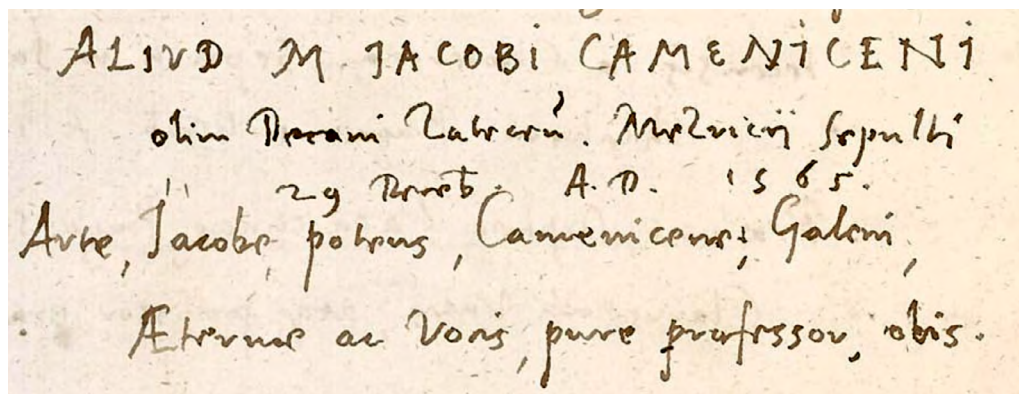 ALIVD M. JACOBI CAMENICENI
olim Decani Zatecen̄. Mezricii sepulti
29 Deceb̄. A. D. 1565.
Arte, Jacobe, potens, Camenicene, Galeni,
Æternæ ac Vocis, pure professor, obis.